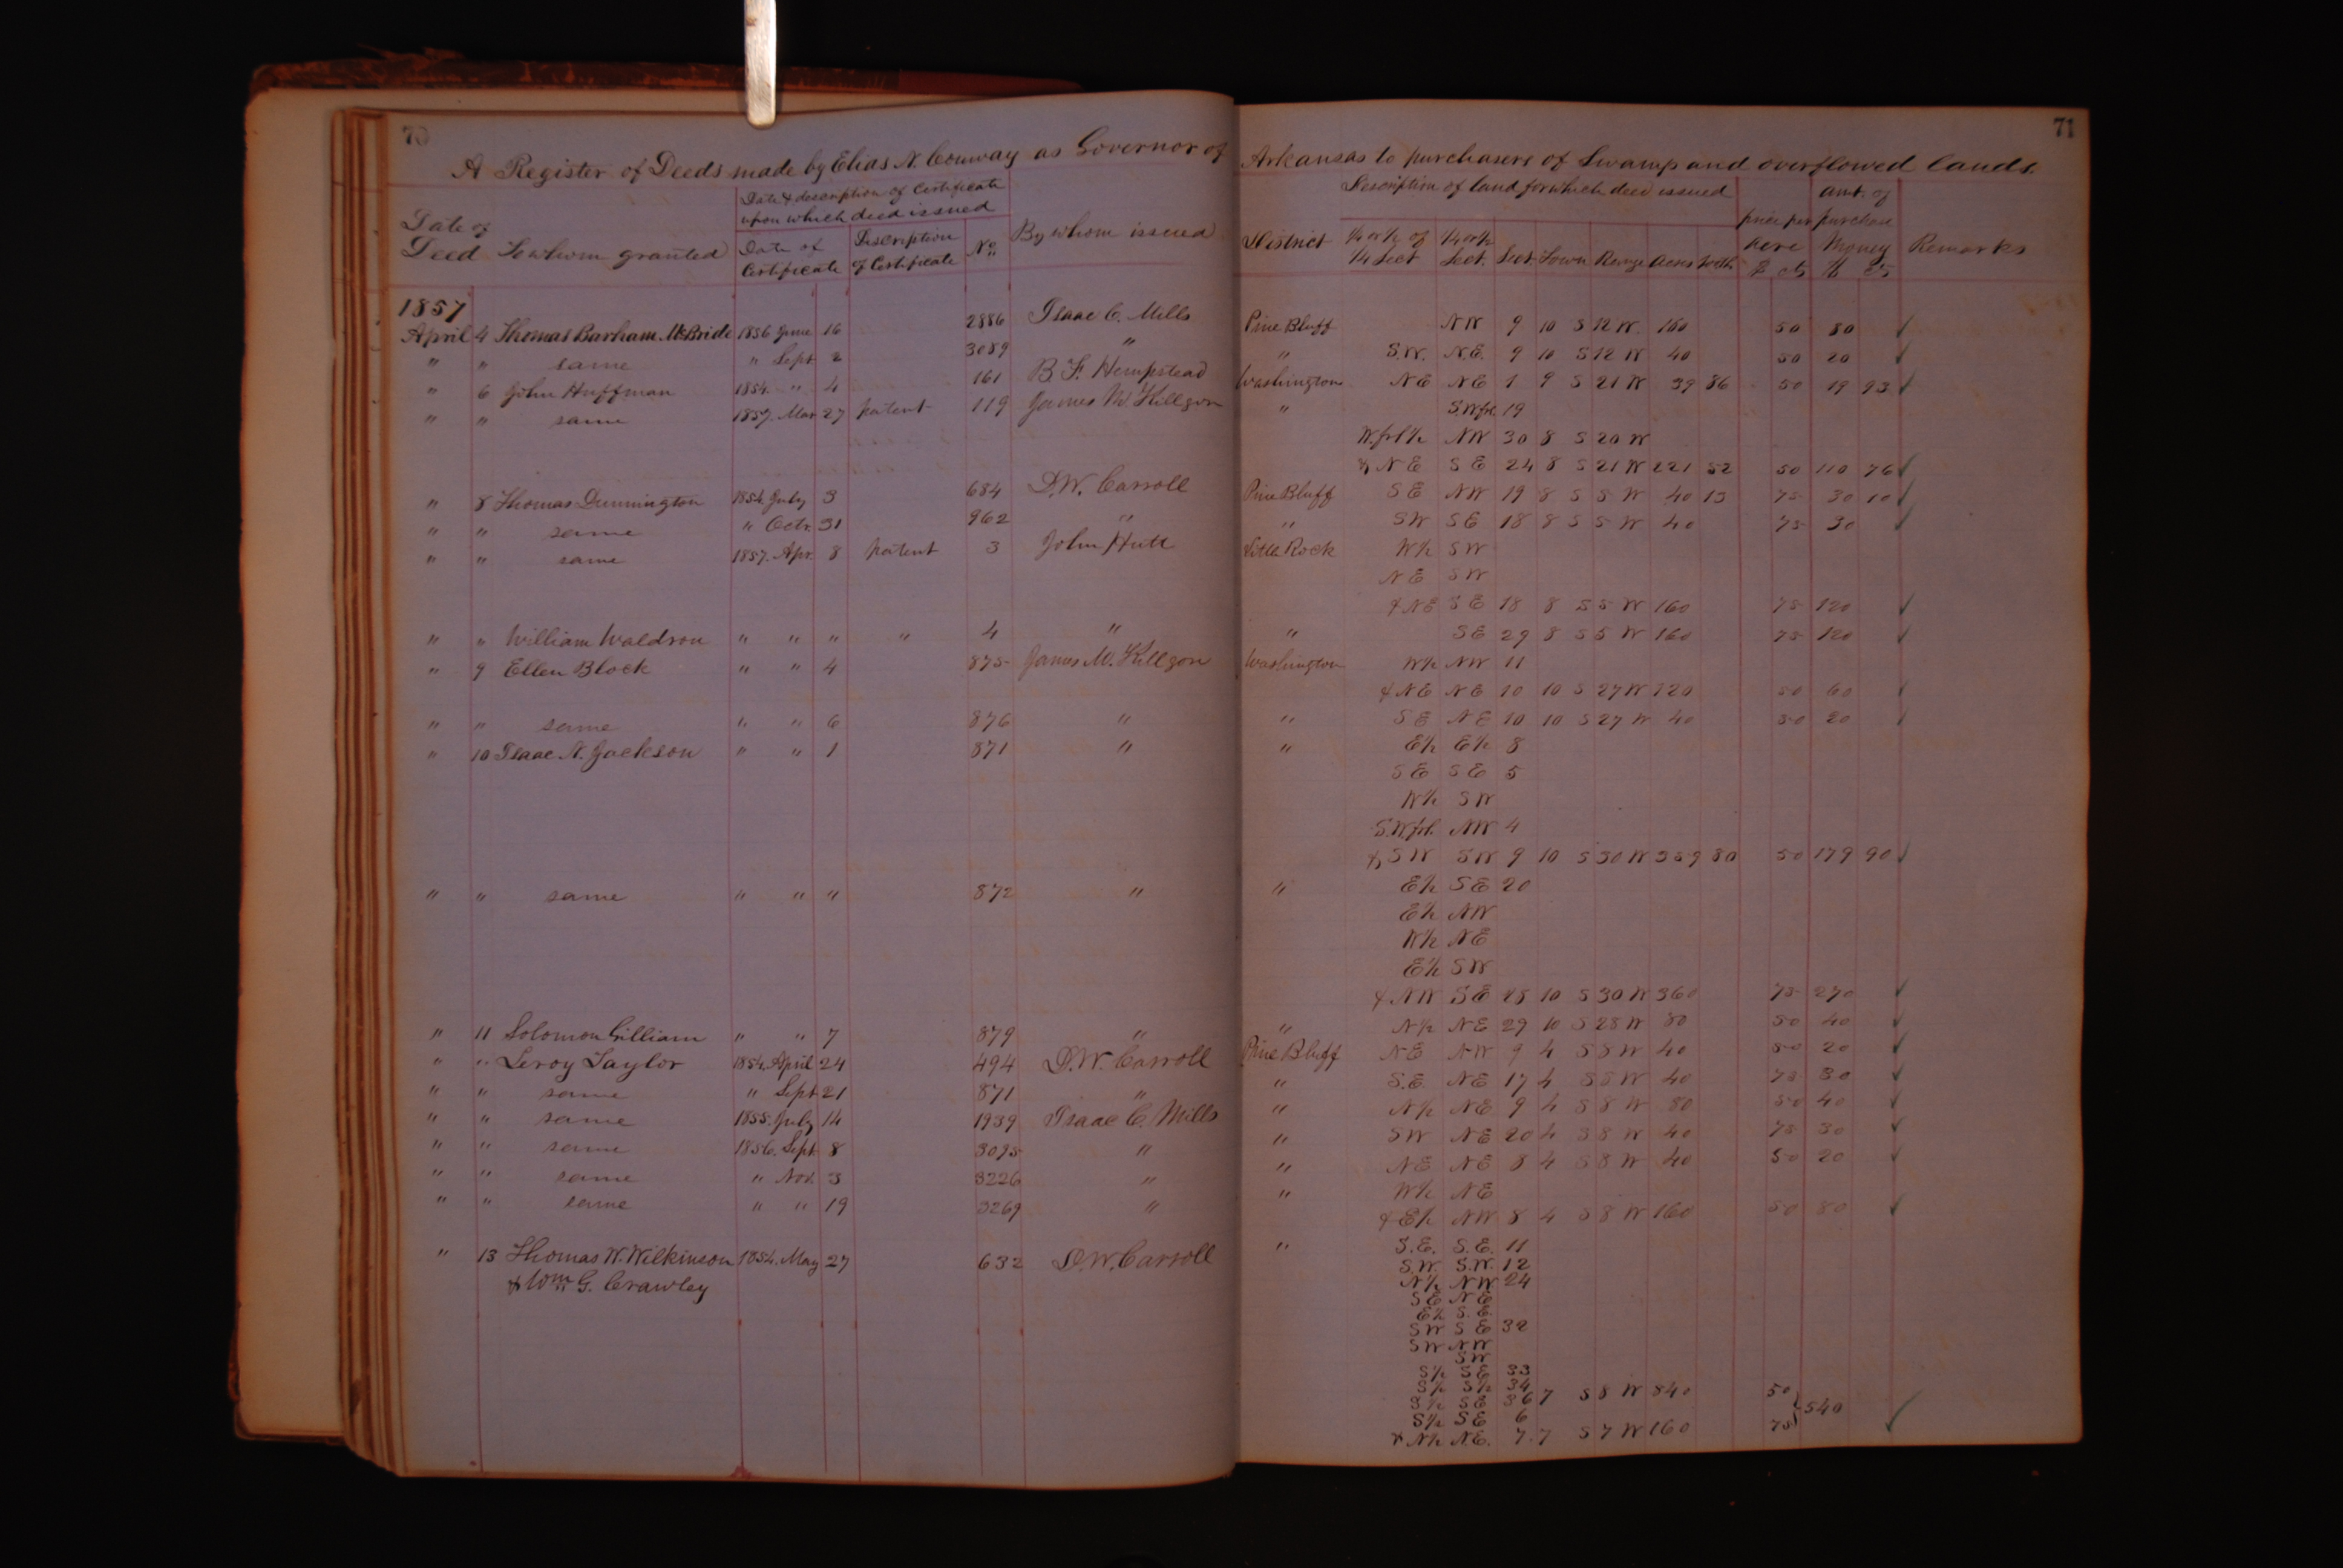 70
71
A Register of Deeds made by Elias N. Conway as Governor of Arkansas to purchasers of Swamp and overflowed lands.
Date of Deed To whom granted Date & description of Certificate upon which deed issued By whom issued Description of land for which deed issued price per acre amt. of purchase money Remarks
Date of Certificate Description of Certificate No. District 1/4 or 1/2 of 1/4 Sect 1/4 or 1/2 Sect. Sect. Town Range acres 100ths $ cts $ cts
1857
April 4 Thomas Barham McBride 1856 June 16 2886 Isaac C. Mills Pine Bluff NW 9 10 S 12 W. 160 50 80 ✓
" " same " Sept. 2 3089 " " S.W. N.E. 9 10 S 12 W 40 50 20 ✓
" 6 John Huffman 1854 " 4 161 B. F. Hempstead Washington NE NE 1 9 S 21 W 39 86 50 19 93 ✓
" " same 1857. Mar 27 patent 119 James M. Killgore " S.W.frl. 19
W.frl 1/2 NW 30 8 S 20 W
& NE SE 24 8 S 21 W 221 52 50 110 76 ✓
" 8 Thomas Dunnington 1854. July 3 684 D.W. Carroll Pine Bluff SE NW 19 8 S 5 W 40 13 75 30 10 ✓
" " same " Octr. 31 962 " " SW SE 18 8 S 5 W 40 75 30 ✓
" " same 1857. Apr. 8 patent 3 John Hutt Little Rock W 1/2 SW
NE SW
& NE SE 18 8 S 5 W 160 75 120 ✓
" " William Waldron " " " " 4 " " SE 29 8 S 5 W 160 75 120 ✓
" 9 Ellen Block " " 4 875 James M. Killgore Washington W 1/2 NW 11
& NE NE 10 10 S 27 W 120 50 60 ✓
" " same " " 6 876 " " SE NE 10 10 S 27 W 40 50 20 ✓
" 10 Isaac N. Jackson " " 1 871 " " E 1/2 E 1/2 8
SE SE 5
W 1/2 SW
S.W.frl. NW 4
& SW SW 9 10 S 30 W 359 80 50 179 90 ✓
" " same " " " 872 " " E 1/2 SE 20
E 1/2 NW
W 1/2 NE
E 1/2 SW
& NW SE 28 10 S 30 W 360 75 270 ✓
" 11 Solomon Gilliam " " 7 879 " " N 1/2 NE 29 10 S 28 W 80 50 40 ✓
" " Leroy Taylor 1854. April 24 494 D.W. Carroll Pine Bluff NE NW 9 4 S 8 W 40 50 20 ✓
" " same " Sept 21 871 " " S.E. NE 17 4 S 8 W 40 75 30 ✓
" " same 1855. July 14 1939 Isaac C. Mills " N 1/2 NE 9 4 S 8 W 80 50 40 ✓
" " same 1856. Sept. 8 3095 " " SW NE 20 4 S 8 W 40 75 30 ✓
" " same " Nov. 3 3226 " " NE NE 8 4 S 8 W 40 50 20 ✓
" " same " " 19 3269 " " W 1/2 NE
& E 1/2 NW 8 4 S 8 W 160 50 80 ✓
" 13 Thomas W. Wilkinson 1854. May 27 632 D.W. Carroll " S.E. S.E. 11
& Wm. G. Crawley S.W. S.W. 12
N 1/2 NW 24
SE NE
E 1/2 S.E.
SW SE 32
SW NW
SW
S 1/2 SE 33
S 1/2 S 1/2 34
S 1/2 SE 36 7 S 8 W 840 50
S 1/2 SE 6 540
& N 1/2 N.E. 7. 7 S 7 W 160 75 ✓